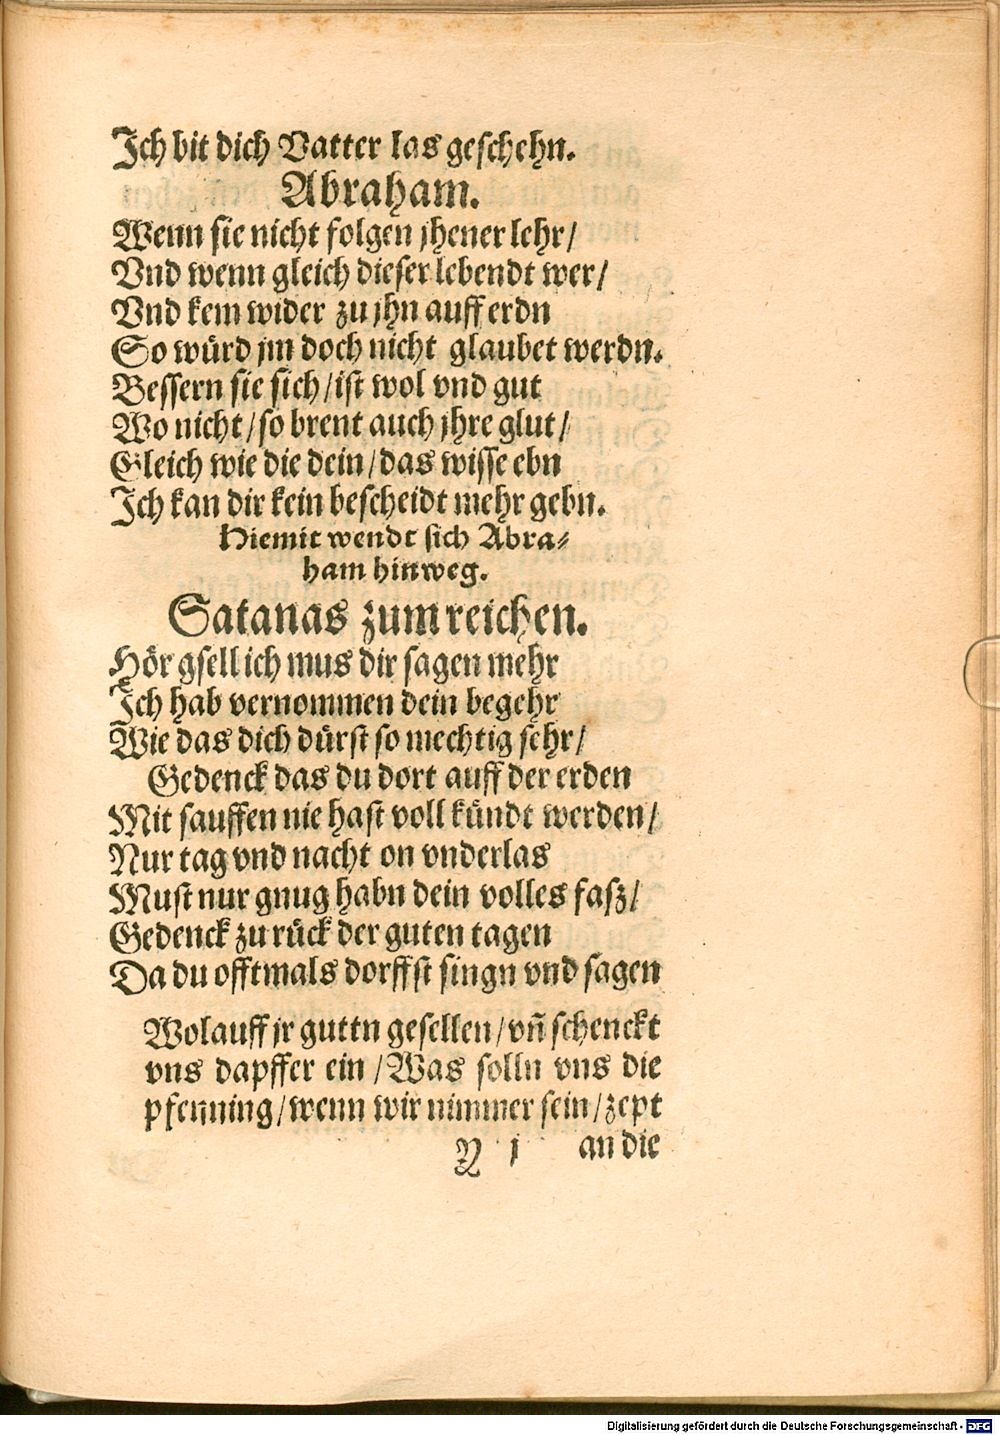 Ich bit dich Vatter las geschehn.
Abraham.
Wenn sie nicht folgen jhener lehr/
Vnd wenn gleich dieser lebendt wer/
Vnd kem wider zu jhn auff erdn
So würd jm doch nicht glaubet werdn.
Bessern sie sich/ist wol vnd gut
Wo nicht/so brent auch jhre glut/
Gleich wie die dein/das wisse ebn
Ich kan dir kein bescheidt mehr gebn.
Hiemit wendt sich Abra-
ham hinweg.
Satanas zum reichen.
Hör gsell ich mus dir sagen mehr
Ich hab vernommen dein begehr
Wie das dich dürst so mechtig sehr/
Gedenck das du dort auff der erden
Mit sauffen nie hast voll kündt werden/
Nur tag vnd nacht on vnderlas
Must nur gnug habn dein volles fasz/
Gedenck zu rück der guten tagen
Da du offtmals dorffst singn vnd sagen
Wolauff jr guttn gesellen/vñ schenckt
vns dapffer ein/Was solln vns die
pfenning/wenn wir nimmer sein/zept
Y j an die
Digitalisierung gefördert durch die Deutsche Forschungsgemeinschaft - DFG